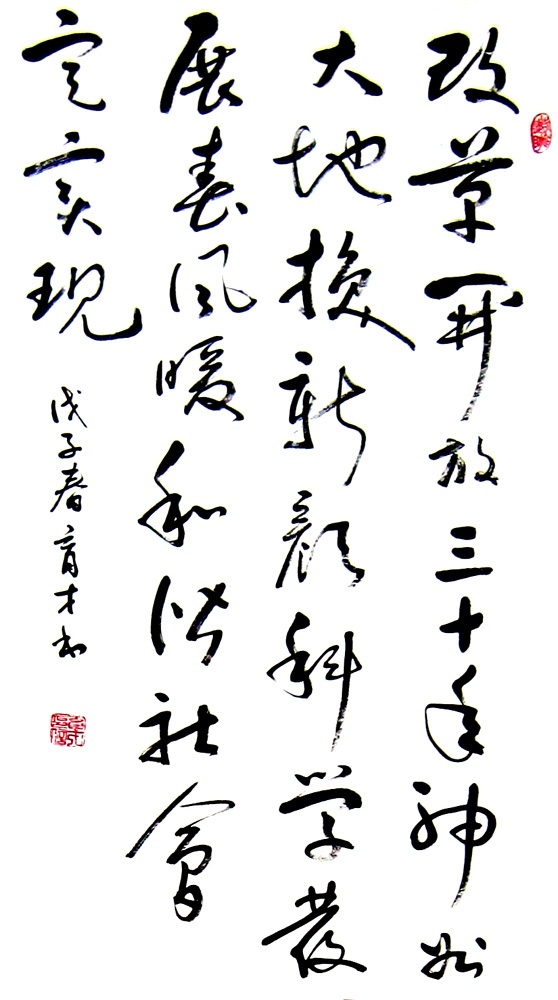 改革開放三十年神州
大地换新颜科学發
展春风暖和谐社會
定实现
戊子春育才书